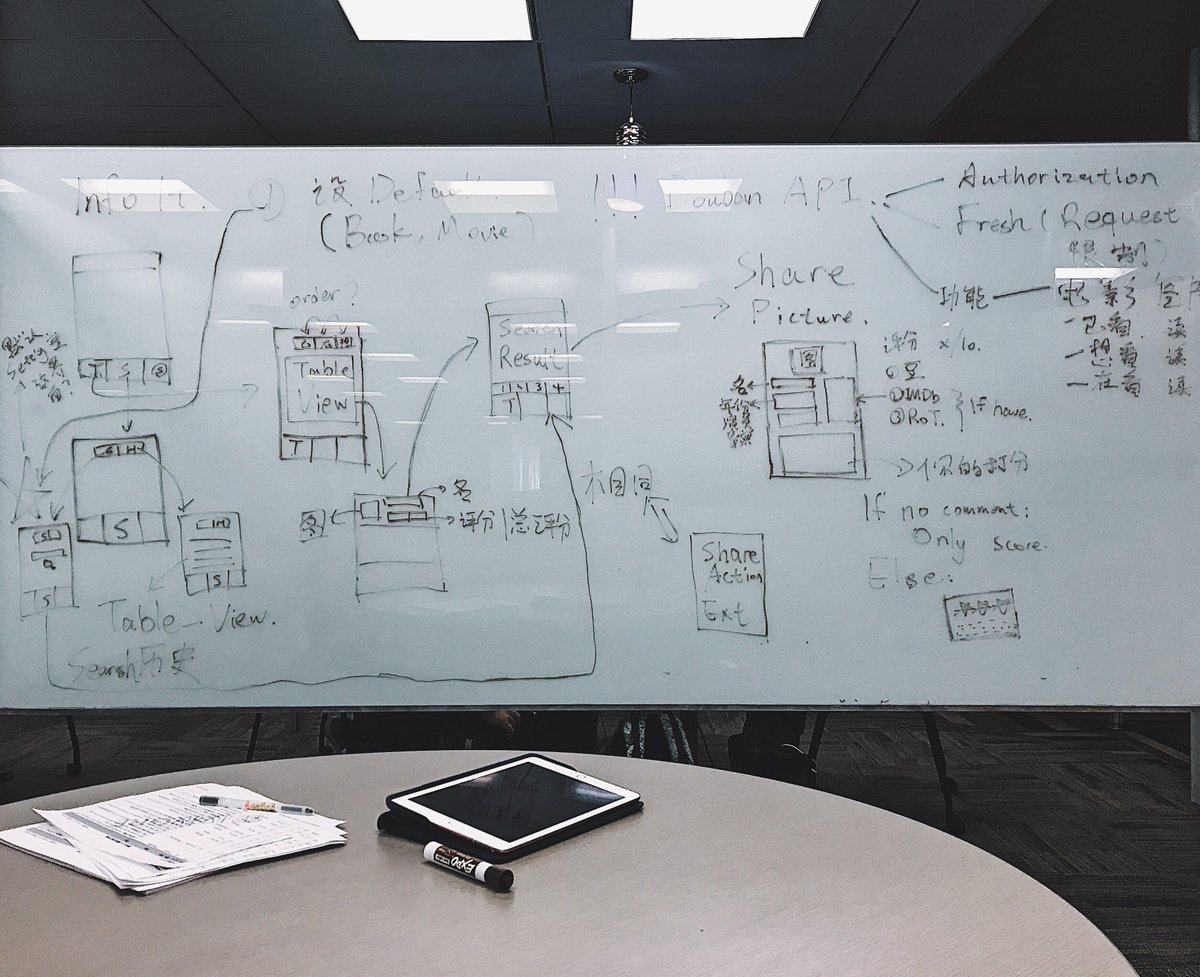 Info It.
① 设 Default.
(Book, Movie)
!!! Douban API.
Authorization
Fresh (Request
限制)
功能
电影 图
一已看 读
一想看 读
一在看 读
order?
Table
View
T
Search
Result
1 2 3 4
T
Share
Picture.
图
名
年份
演员
评分 x/10.
①豆
②IMDb
③RoT.
If have.
你的打分
If no comment:
Only score.
Else:
T S
S
S
S
Table-View.
Search历史
图
名
评分|总评分
Share
Action
Ext
EXPO